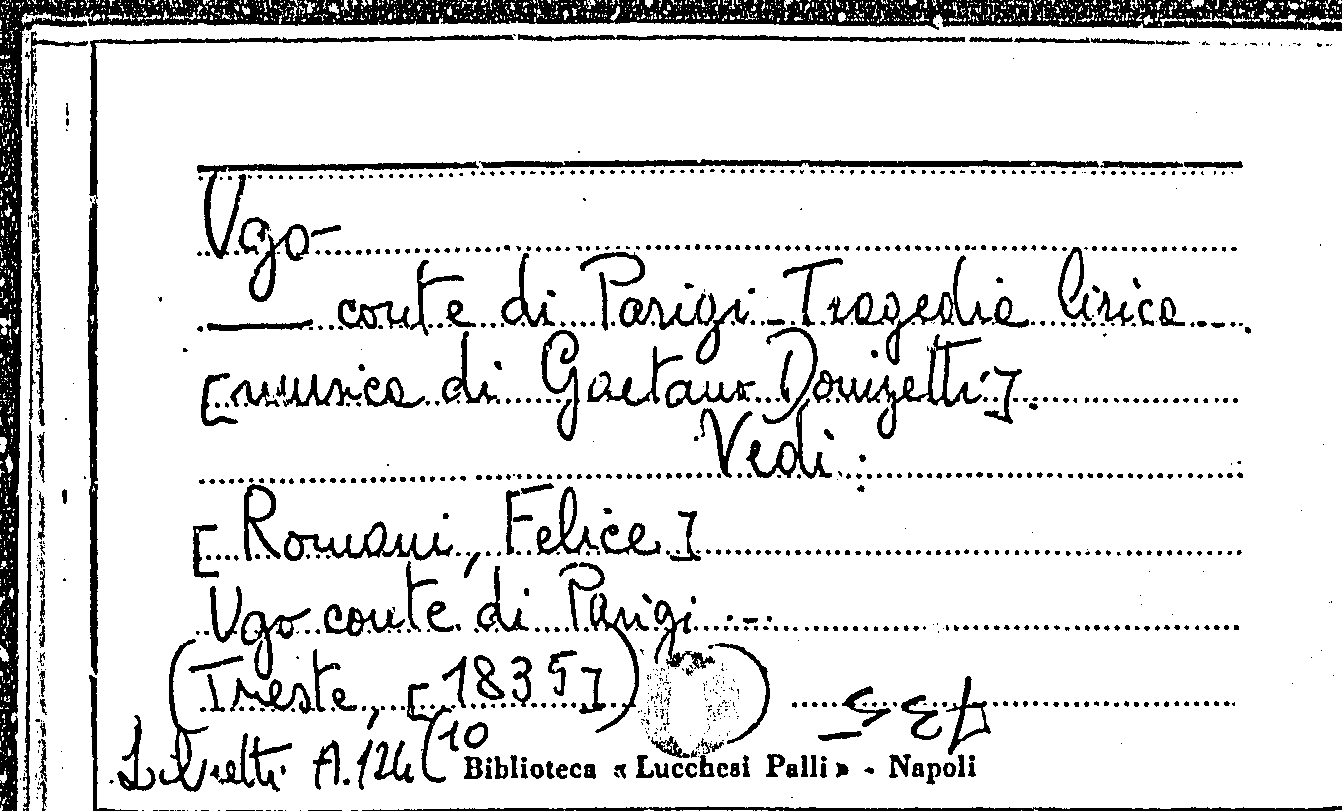 Ugo
—— conte di Parigi - Tragedia lirica ...
[musica di Gaetano Donizetti].
Vedi:
[Romani, Felice]
Ugo conte di Parigi ...
(Trieste, [1835])
Libretti A.124(10
Biblioteca « Lucchesi Palli » - Napoli